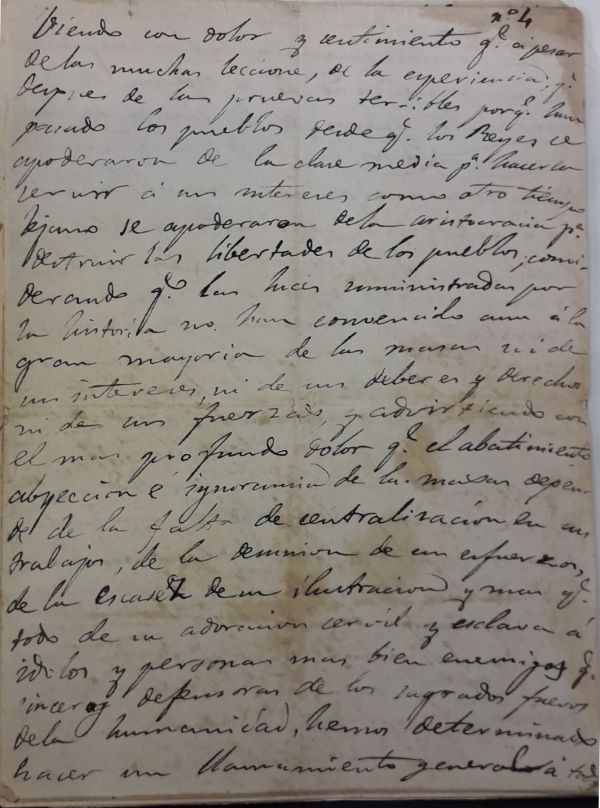 nº 4
Viendo con dolor y centimiento q.e á pesar
de las muchas leccione, de la esperiencia, q.e
despues de las pruevas terribles porq.e han
pasado los pueblos desde q.e los Reyes se
apoderaron de la clase media p.a hacerla
servir á sus intereses como otro tiempo
lejano se apoderaron dela aristocracia p.a
destruir las libertades de los pueblos, consi-
derando q.e las luces suministradas por
la historia no han convencido aun á la
gran mayoria de las masas ni de
sus intereses, ni de sus deberes y derechos
ni de sus fuerzas, y advirtiendo con
el mas profundo dolor q.e el abatimiento
abyeccion é ignorancia de las masas depen
de de la falta de centralizacion en sus
trabajos, de la desunion de sus esfuerzos,
de la escasez de su ilustracion y mas q.e
todo de su adoracion cervil y esclava á
idolos y personas mas bien enemigos q.e
sinceros defensoras de los sagrados fueros
dela humanidad, hemos determinado
hacer un llamamiento general á todos